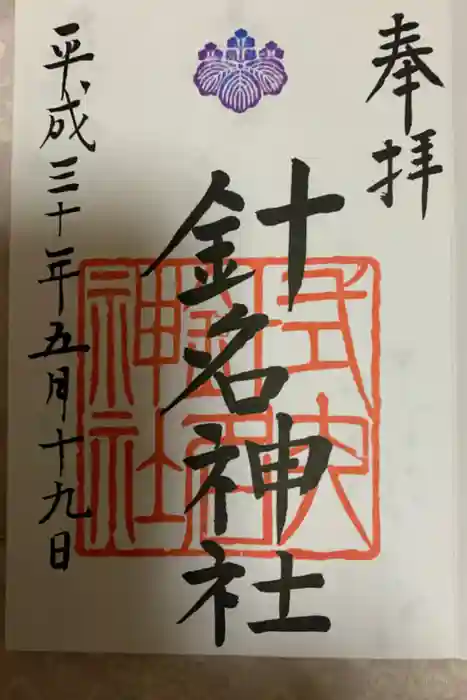 奉拝
針名神社
平成三十年五月十九日
式内
針名
神社